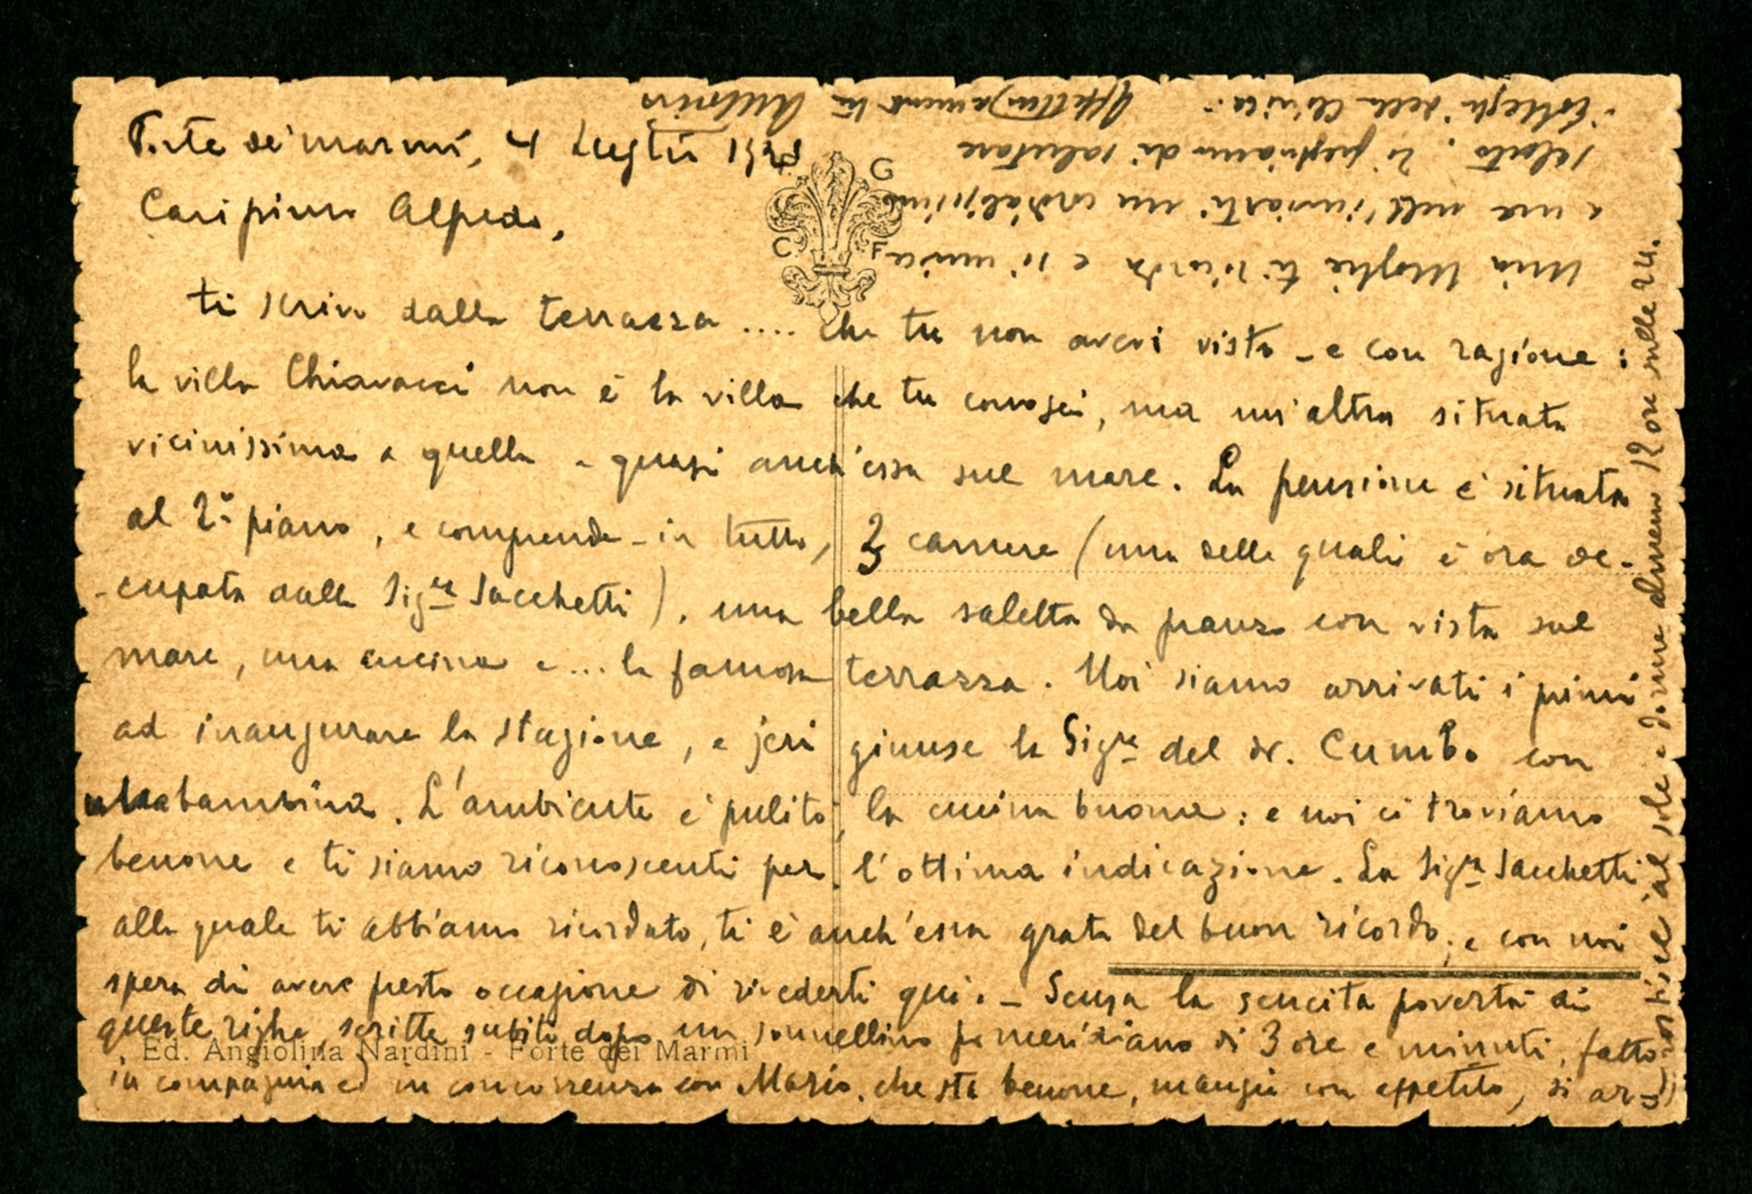 Forte dei marmi, 4 Luglio
Carissimo Alfredo,
ti scrivo dalla terrazza .... che tu non avevi visto - e con ragione :
la villa Chiavacci non è la villa che tu conosci, ma un'altra situata
vicinissima a quella e quasi anch'essa sul mare. La pensione è situata
al 2° piano, e comprende - in tutto, 3 camere (una delle quali è ora oc-
-cupata dalla Sig.ra Sacchetti), una bella saletta da pranzo con vista sul
mare, una cucina e ... la famosa terrazza. Noi siamo arrivati i primi
ad inaugurare la stagione, e jeri giunse la Sigra del dr. Cumbo con
bambina. L'ambiente è pulito, la cucina buona : e noi ci troviamo
benone e ti siamo riconoscenti per l'ottima indicazione. La Sigra Sacchetti
alla quale ti abbiamo ricordato, ti è anch'essa grata del buon ricordo, e con noi
spera di avere presto occasione di rivederti qui. - Scusa la scucita povertà di
queste righe, scritte subito dopo un sonnellino pomeridiano di 3 ore e minuti, fatto
in compagnia ed in concorrenza con Mario, che sta benone, mangia con appetito, si ar-
rostisce al sole e dorme almeno 12 ore sulle 24.
Mia Moglie ti ricorda e si unisce
a me nell'inviarti un cordialissimo
saluto. Ti preghiamo di salutare
i Colleghi della Clinica. Affettuosamente tuo
G
C. F
Ed. Angiolina Nardini - Forte dei Marmi